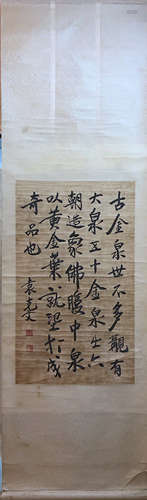 古金泉世不多觀有
大泉五十金泉出六
朝造象佛腹中泉
以黃金葉就望打成
奇品也 袁克文